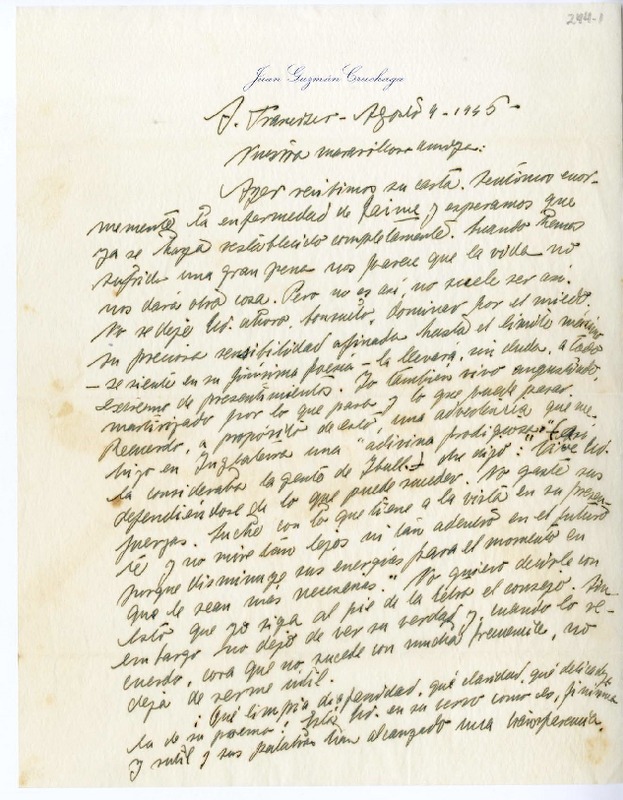 244-1
Juan Guzmán Cruchaga
S. Francisco - Agosto 9 - 1946 -
Nuestra maravillosa amiga:
Ayer recibimos su carta. Sentimos enor-
memente la enfermedad de Jaime y esperamos que
ya se haya restablecido completamente. Cuando hemos
sufrido una gran pena nos parece que la vida no
nos dará otra cosa. Pero no es así, no suele ser así.
No se deje Ud. ahora, Consuelo, dominar por el miedo.
Su preciosa sensibilidad afinada hasta el límite máximo
- se siente en su finísima poesía - la llevará, sin duda, a todo
extremo de presentimientos. Yo también vivo angustiado,
martirizado por lo que pasa y lo que puede pasar.
Recuerdo, a propósito de esto, una advertencia que me
hizo en Inglaterra una "adivina prodigiosa" (así
la consideraba la gente de Hull). Me dijo: "Vive Ud.
defendiéndose de lo que puede suceder. No gaste sus
fuerzas. Luche con lo que tiene a la vista en su presen-
te y no mire tan lejos ni tan adentro en el futuro
porque disminuye sus energías para el momento en
que le sean más necesarias." No quiero decirle con
esto que yo siga al pie de la letra el consejo. Sin
embargo no dejo de ver su verdad y, cuando lo re-
cuerdo, cosa que no sucede con mucha frecuencia, no
deja de serme útil.
¡Qué limpia dignidad, qué claridad, qué delicadeza
la de su poema! Está Ud. en su verso como es, finísima
y sutil y sus palabras han alcanzado una transparencia